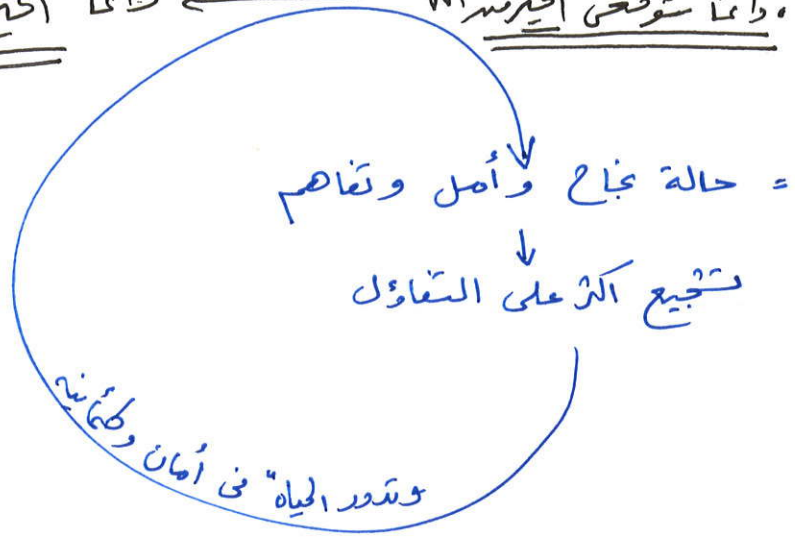 • دائماً تتوقعى الخير من الله
= حالة نجاح وأمل وتفاهم
تشجيع اكثر على التفاؤل
وتدور الحياه" فى أمان وطمأنينه